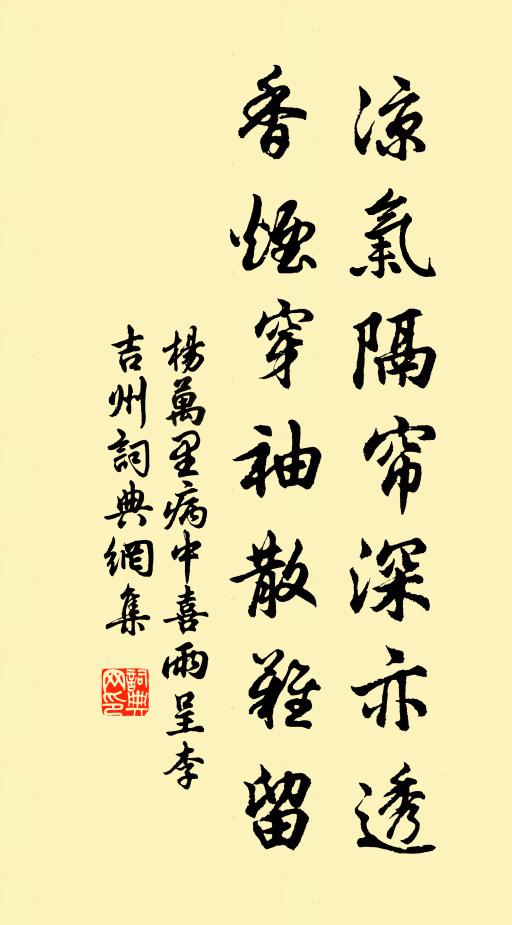 凉氣隔帘深亦透
香煙穿袖散難留
楊萬里病中喜雨呈李
吉州詞典網集
詞典網印